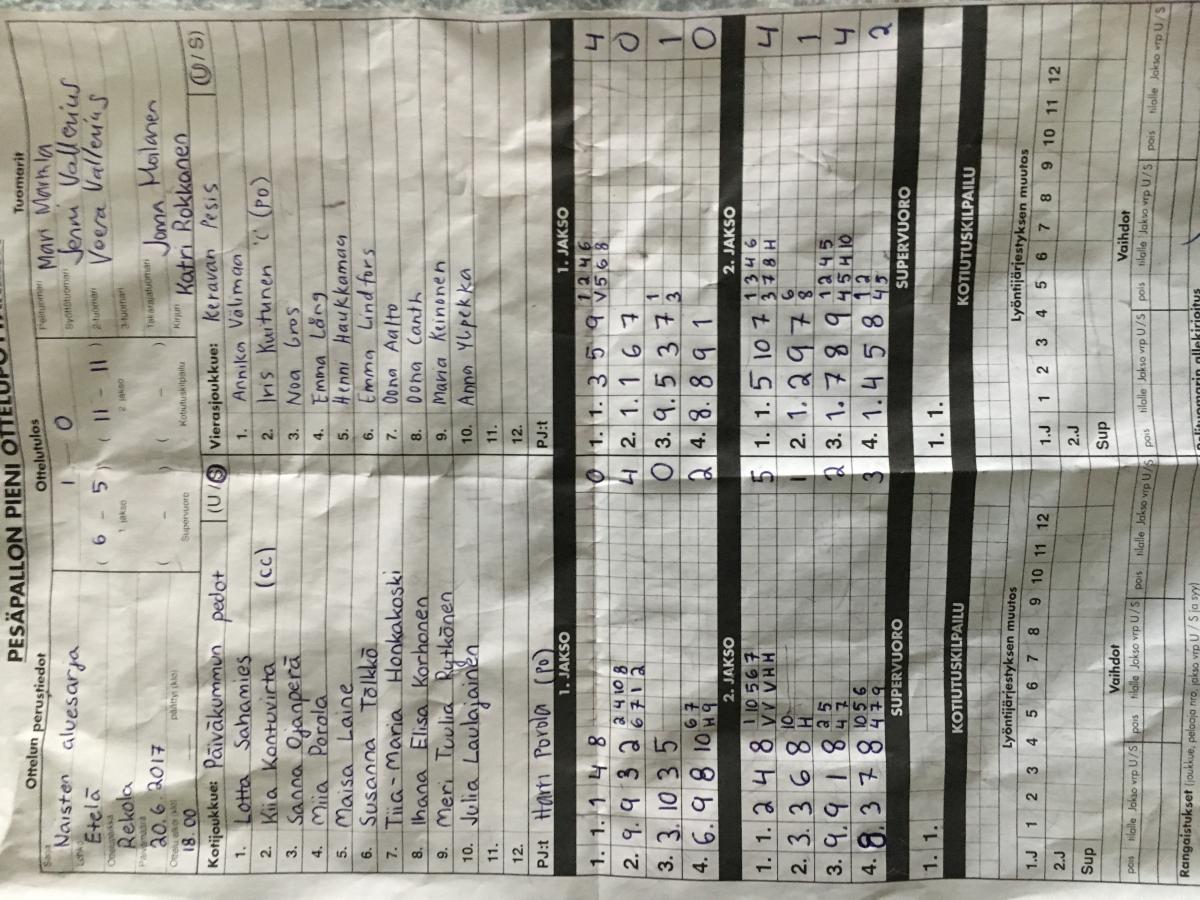 PESÄPALLON PIENI
Ottelun perustiedot
Ottelutulos
Tuomarit
Sarja
Naisten aluesarja
Lohko
Etelä
Ottelupaikka
Rekola
Päivämäärä
20.6.2017
Ottelu alkoi (klo)
18.00
päättyi (klo)
1 - 0
( 6 - 5 ) ( 11 - 11 )
1. jakso 2. jakso
( - ) ( - )
Supervuoro Kotiutuskilpailu
Pelituomari
Mari Marttila
Syöttötuomari
Jenni Vallenius
2-tuomari
Veera Vallenius
3-tuomari
Takarajatuomari
Janna Moilanen
Kirjuri
Katri Rokkanen
Kotijoukkue: Päiväkummun pedot (U/S)
1. Lotta Sahamies
2. Kiia Kontuvirta (cc)
3. Sanna Ojanperä
4. Miia Porola
5. Maisa Laine
6. Susanna Tölkkö
7. Tiia-Maria Honkakoski
8. Ihana Elisa Korhonen
9. Meri Tuulia Rytkönen
10. Julia Laulajainen
11.
12.
PJ:t Harri Porola (PO)
Vierasjoukkue: Keravan Pesis (U/S)
1. Annika Välimaa
2. Iris Kuitunen C (PO)
3. Noa Gros
4. Emma Lång
5. Henni Haukkamaa
6. Emma Lindfors
7. Oona Aalto
8. Oona Canth
9. Maria Keinonen
10. Anna Ylipekka
11.
12.
PJ:t
1. JAKSO
1. 1. 1 4 8 0
2 4 10 8
2. 9. 9 3 2 6 7 1 2 4
3. 3. 10 3 5 0
6 7
4. 6. 9 8 10 H 9 2
1. JAKSO
1 2 4 6
1. 1. 3 5 9 V 5 6 8 4
2. 1. 1 6 7 0
1
3. 9. 5 3 7 3 1
4. 8. 8 9 1 0
2. JAKSO
1 10 5 6 7
1. 1. 2 4 8 V V V H H 5
10
2. 3. 3 6 8 H 1
2 5
3. 9. 9 1 8 4 7 2
10 5 6
4. 8. 3 7 8 4 7 9 3
2. JAKSO
1 3 4 6
1. 1. 5 10 7 3 7 8 H 4
6
2. 1. 2 9 7 8 1
1 2 4 5
3. 1. 7 8 9 4 5 H 10 4
1 2
4. 1. 4 5 8 4 5 2
SUPERVUORO
1. 1.
SUPERVUORO
1. 1.
KOTIUTUSKILPAILU
KOTIUTUSKILPAILU
Lyöntijärjestyksen muutos
1.J 1 2 3 4 5 6 7 8 9 10 11 12
2.J
Sup
Lyöntijärjestyksen muutos
1.J 1 2 3 4 5 6 7 8 9 10 11 12
2.J
Sup
Vaihdot
pois tilalle Jakso vrp U/S pois tilalle Jakso vrp U/S pois tilalle Jakso vrp U/S
Vaihdot
pois tilalle Jakso vrp U/S pois tilalle Jakso vrp U/S pois tilalle Jakso vrp U/S
Rangaistukset (joukkue, pelaaja nro, jakso vrp U / S ja syy)